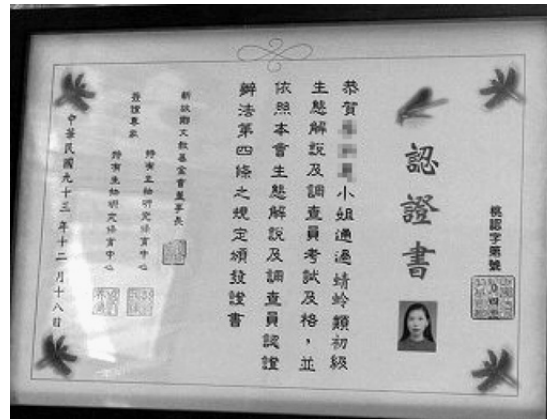 認證書
桃認字第號
恭賀 小姐通過蜻蛉類初級
生態解說及調查員考試及格，並
依照本會生態解說及調查員認證
辦法第四條之規定頒發證書
文教基金會董事長
簽證專家
特有生物研究保育中心
特有生物研究保育中心
中華民國九十三年十二月十八日